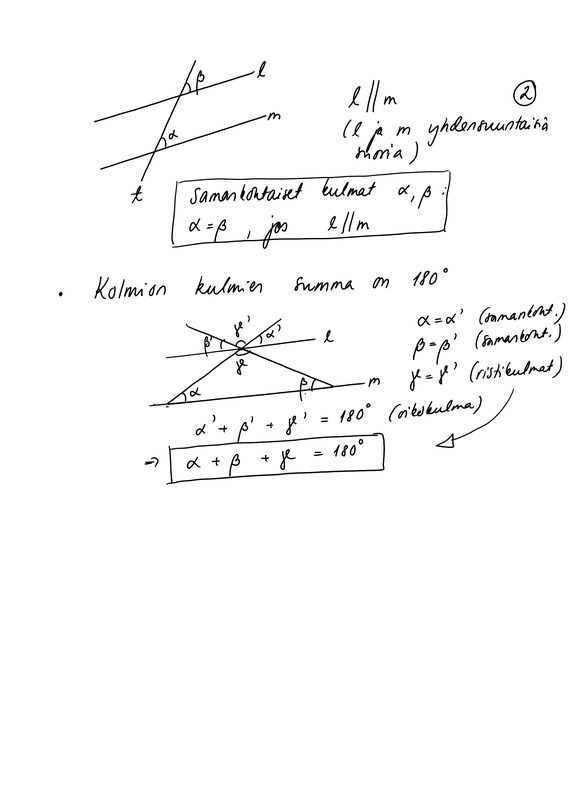 β
l
α
m
t
l // m
2
(l ja m yhdensuuntaisia
suoria)
Samankohtaiset kulmat α, β :
α = β , jos l // m
• Kolmion kulmien summa on 180°
γ'
β' α'
l
γ
α β
m
α = α' (samankoht.)
β = β' (samankoht.)
γ = γ' (ristikulmat)
α' + β' + γ' = 180° (oikokulma)
⇒ α + β + γ = 180°